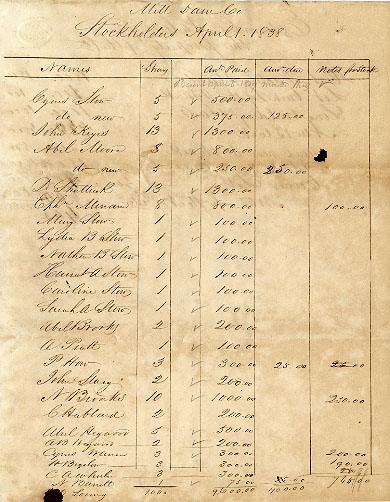 Mill Dam Co
Stockholders April 1. 1838
Names Shares Amt Paid Amt Due Notes
Cyrus Stow 5 500.00
do new 5 375.00 125.00
John Keyes 13 1300.00
Abel Moore 8 800.00
do new 5 250.00 250.00
D. Shattuck 13 1300.00
Ephm Merriam 8 800.00 100.00
Mary Stow 1 100.00
Lydia B Stow 1 100.00
Nathan B Stow 1 100.00
Harriet A Stow 1 100.00
Caroline Stow 1 100.00
Sarah A Stow 1 100.00
Abel Brooks 2 200.00
A Pratt 1 100.00
P How 3 300.00 25.00
John Stacy 2 200.00
N Brooks 10 1000.00 250.00
C Hubbard 2 200.00
Abel Heywood 5 500.00
2 200.00
Cyrus Warren 3 300.00 200.00
3 300.00 190.00
3 300.00
75.00
400.00 765.00